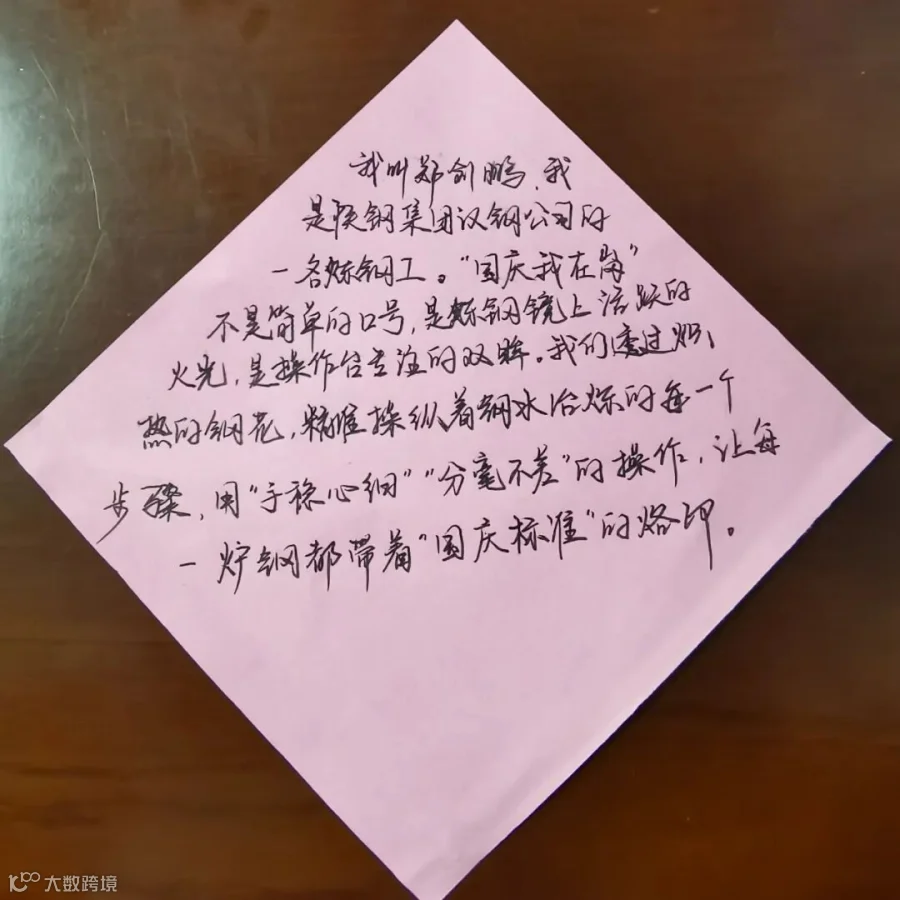 我叫郑剑鹏,我
是陕钢集团汉钢公司的
一名炼钢工。“国庆我在岗”
不是简单的口号,是炼钢镜上活跃的
火光,是操作台专注的双眸。我们透过炽
热的钢花,精准操纵着钢水冶炼的每一个
步骤,用“手稳心细”“分毫不差”的操作,让每
一炉钢都带着“国庆标准”的烙印。
大数跨境